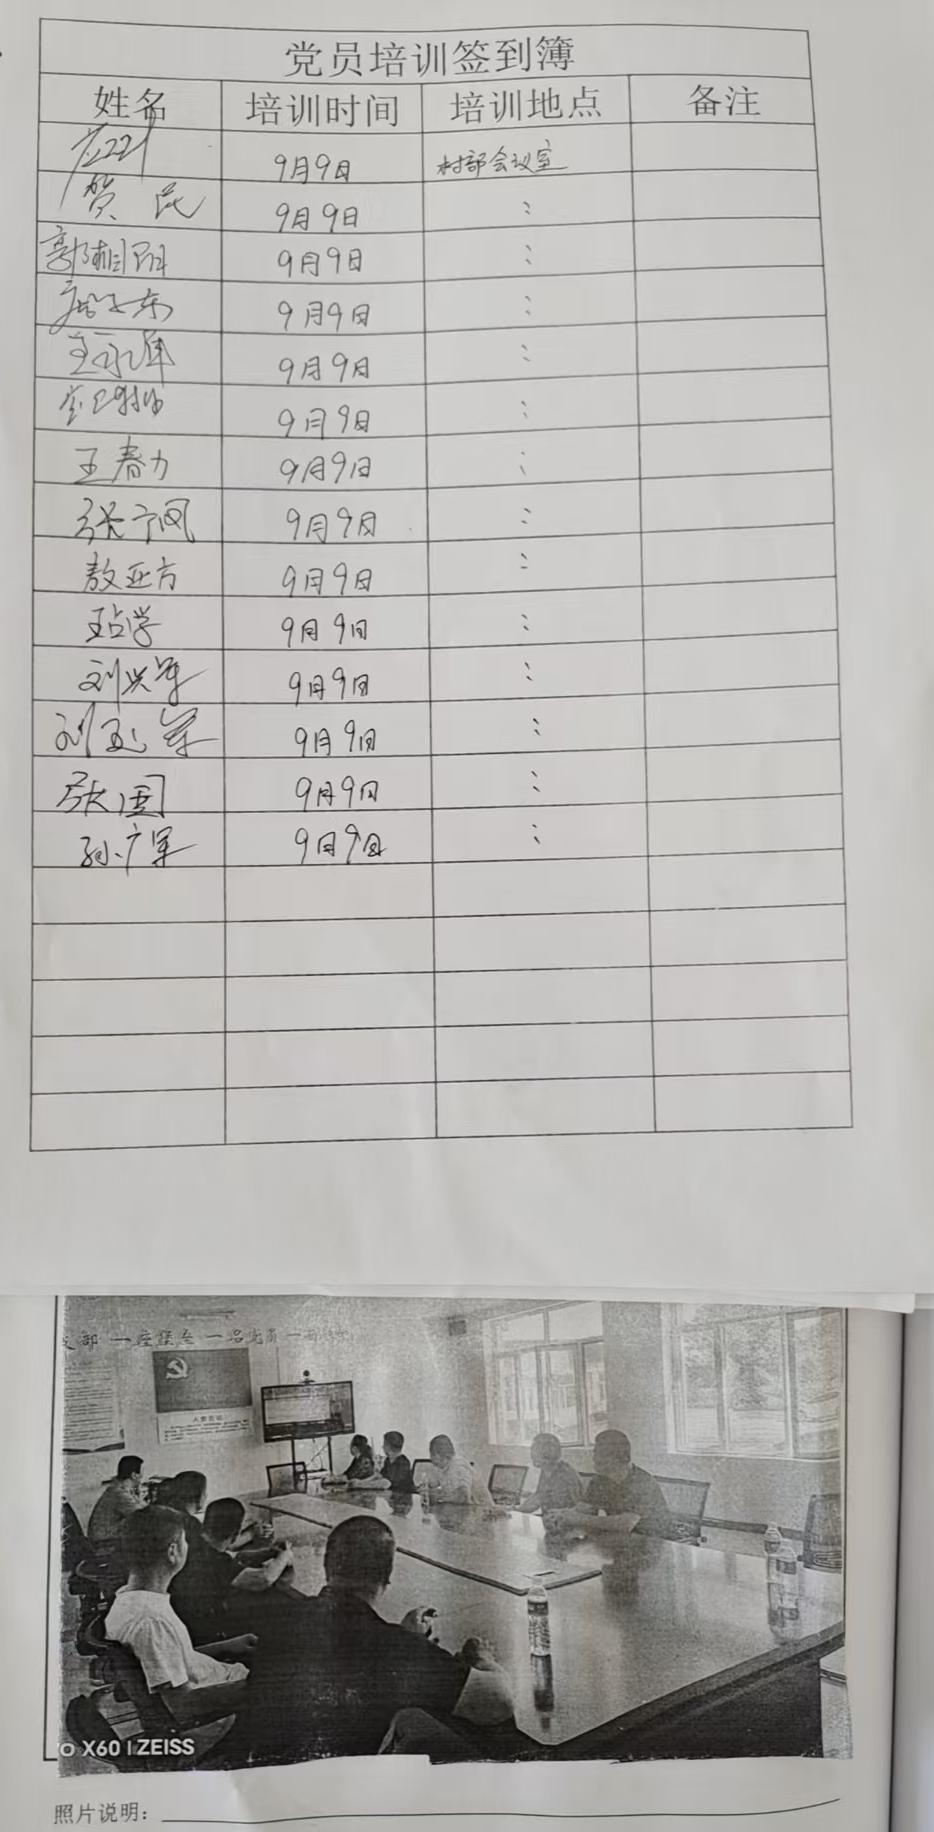 党员培训签到簿
姓名 培训时间 培训地点 备注
9月9日 村部会议室
贺 民 9月9日 :
郭相阳 9月9日 :
9月9日 :
王永军 9月9日 :
9月9日 :
王春力 9月9日 :
张宁凤 9月9日 :
敖亚方 9月9日 :
王占学 9月9日 :
刘兴军 9月9日 :
刘玉军 9月9日 :
张国 9月9日 :
孙广军 9月9日 :
支部一座堡垒 一名党员一面
入党誓词
X60 | ZEISS
照片说明：